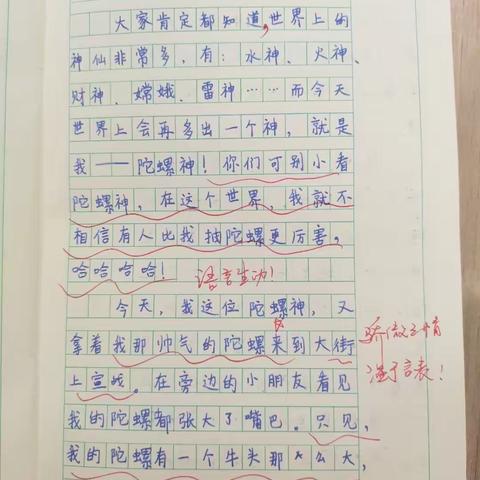 大家肯定都知道,世界上的
神仙非常多,有:水神、火神、
财神、嫦娥、雷神……而今天
世界上会再多出一个神,就是
我——陀螺神!你们可别小看
陀螺神,在这个世界,我就不
相信有人比我抽陀螺更厉害,
哈哈哈哈!
语言生动!
今天,我这位陀螺神,又
拿着我那帅气的陀螺来到大街
上宣战。在旁边的小朋友看见
我的陀螺都张大了嘴巴。只见,
我的陀螺有一个牛头那么大,
骄傲之情
溢于言表!